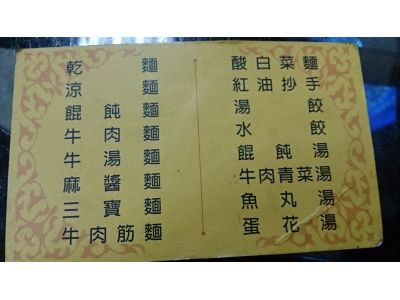 乾麵
涼麵
餛飩麵
牛肉麵
牛湯麵
麻醬麵
三寶麵
牛肉筋麵
酸白菜麵
紅油抄手
湯餃
水餃
餛飩湯
牛肉青菜湯
魚丸湯
蛋花湯